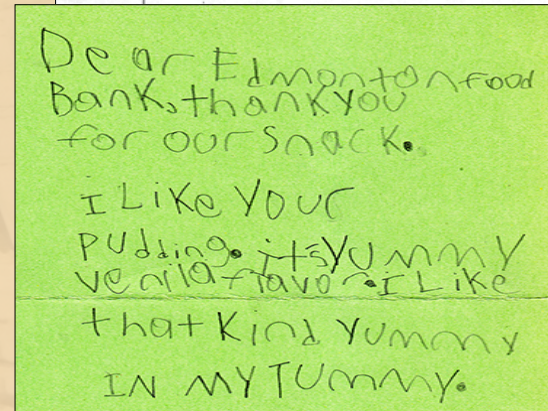 Dear Edmonton food
Bank, thank you
for our snack.
i Like your
pudding. it's yummy
venilla flavor. i Like
that kind yummy
IN MY TUMMY.